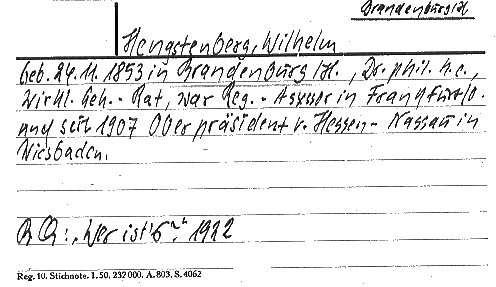 Brandenburg/H
Hengstenberg, Wilhelm
Geb. 24.11.1853 in Brandenburg/H., Dr. phil. h.c.,
Wirkl. Geh.-Rat, war Reg.-Assessor in Frankfurt/O.
und seit 1907 Oberpräsident v. Hessen-Nassau in
Wiesbaden.
"Wer ist's" 1922
Reg. 10. Stichnote. 1.50. 232000. A. 803. S. 4062